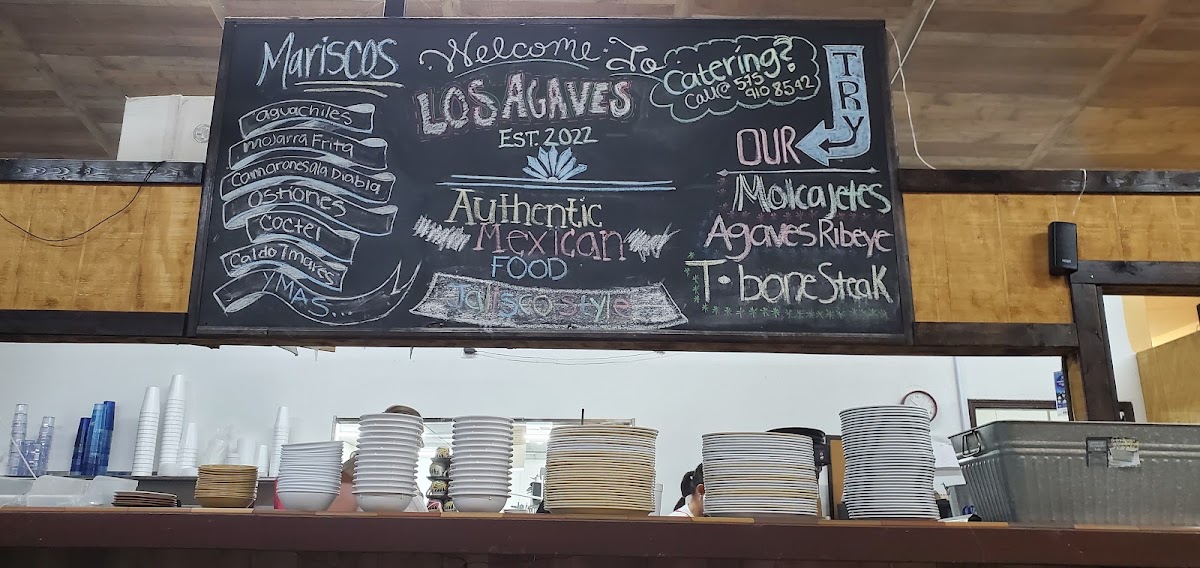 Mariscos
aguachiles
mojarra Frita
Camarones ala Diabla
Ostiones
Coctel
Caldo 7 mares
Y MAS...
Welcome To
LOS AGAVES
EST. 2022
Authentic
Mexican
FOOD
Jalisco style
Catering?
Call@ 575
910 8542
TRY
OUR
Molcajetes
Agaves Ribeye
T-bone Steak